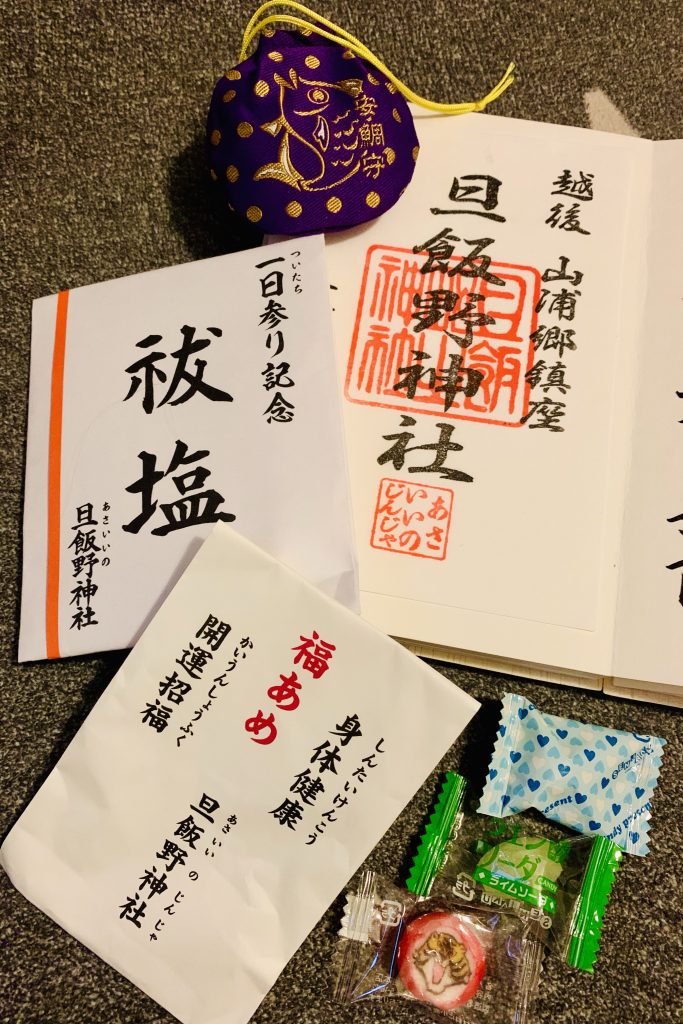 安鯛守
越後 山浦郷鎮座
旦飯野神社
旦飯野神社
あさいいのじんじゃ
一日参り記念
ついたち
祓塩
旦飯野神社
あさいいの
福あめ
身体健康
しんたいけんこう
開運招福
かいうんしょうふく
旦飯野神社
あさいいのじんじゃ
ソーダ
CANDY
ライムソーダ